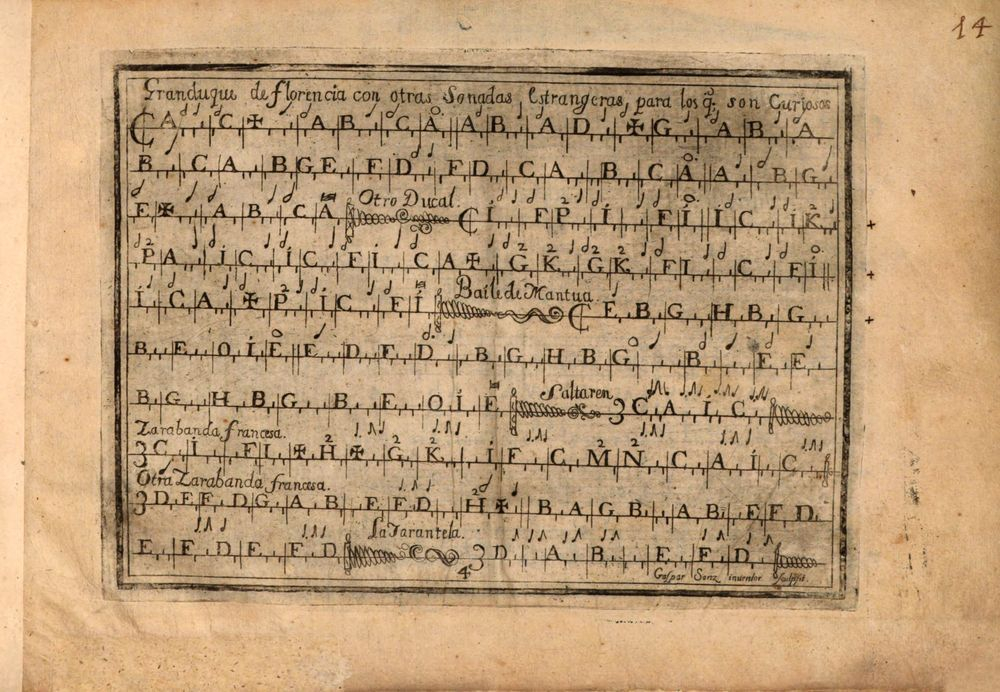 14
Granduque de florencia con otras Sonadas Estrangeras, para los q̃. son Curiosos
C A C ✠ A B C A A B A D ✠ G A B A
B C A B G E E D E D C A B C A A B G
E ✠ A B C A Otro Ducal. C İ E P İ E İ İ C İ K
P A İ C İ C E İ C A ✠ G K G K E I C E İ
İ C A ✠ P İ C E İ Baile de Mantua. C E B G H B G
B E O İ E E D E D B G H B G B E E
B G H B G B E O İ E Saltaren 3 C A İ C
Zarabanda francesa.
3 C İ E I ✠ H ✠ G K İ E C M N C A İ C
Otra Zarabanda francesa.
3 D E E D G A B E E D H ✠ B A G B A B E E D
E E D E E D La Tarantela. 3 D A B E E D
4
Gaspar Sanz inventor sculpsit.